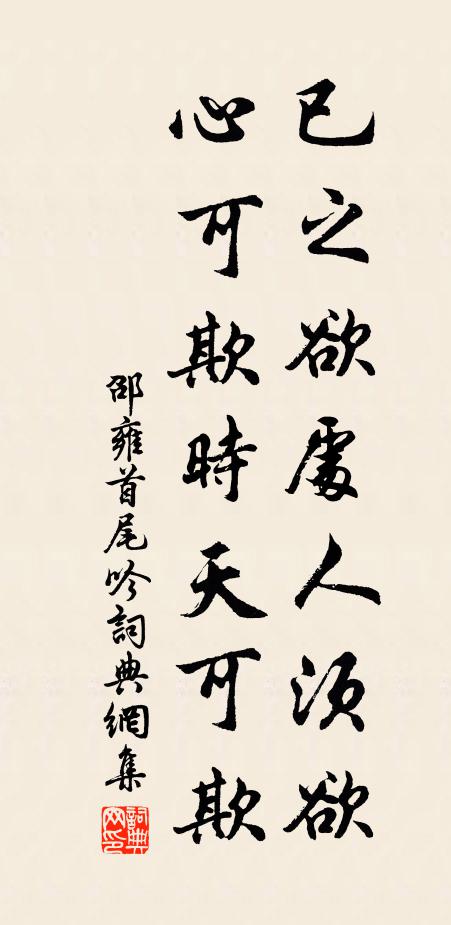 已之欲處人須欲
心可欺時天可欺
邵雍首尾吟詞典網集
詞典網印